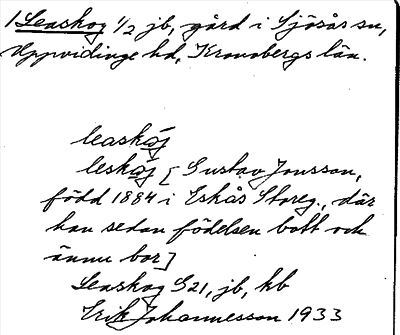 1 Leaskog 1/2 jb, gård i Sjösås sn,
Uppvidinge hd, Kronobergs län.
leaskój
leskój [Gustav Jonsson,
född 1884 i Eskås Storeg., där
han sedan födelsen bott och
ännu bor]
Leaskog S21, jb, kb
Erik Johannesson 1933